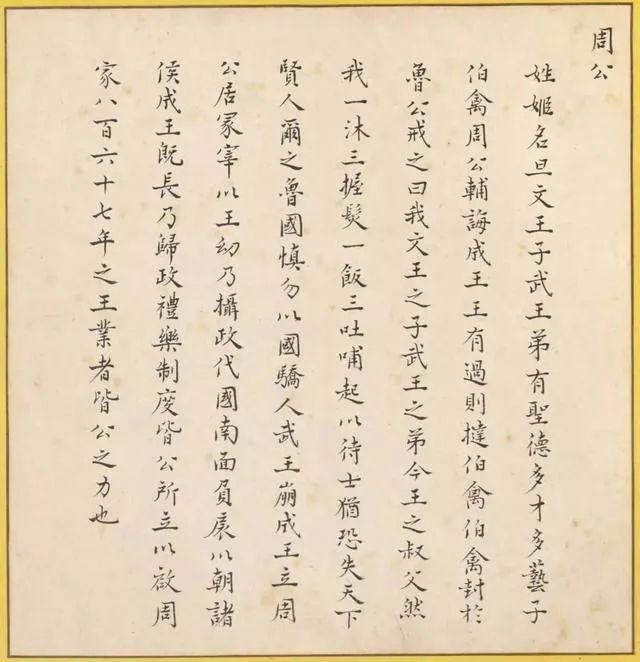 周公
姓姬名旦文王子武王弟有聖德多才多藝子
伯禽周公輔誨成王王有過則撻伯禽伯禽封於
魯公戒之曰我文王之子武王之弟今王之叔父然
我一沐三握髮一飯三吐哺起以待士猶恐失天下
賢人爾之魯國慎勿以國驕人武王崩成王立周
公居冢宰以王幼乃攝政代國南面負扆以朝諸
侯成王既長乃歸政禮樂制度皆公所立以啟周
家八百六十七年之王業者皆公之力也